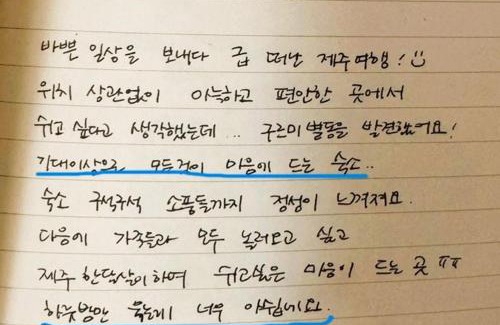 바쁜 일상을 보내다 급 떠난 제주여행!
위치 상관없이 아늑하고 편안한 곳에서
쉬고 싶다고 생각했는데... 구르미별동을 발견했어요!
기대이상으로 모든것이 마음에 드는 숙소..
숙소 구석구석 소품들까지 정성이 느껴져요.
다음에 가족들과 모두 놀러오고 싶고
제주 한달살이하며 쉬고싶은 마음이 드는 곳 ㅠㅠ
하룻밤만 묵는게 너무 아쉽네요.